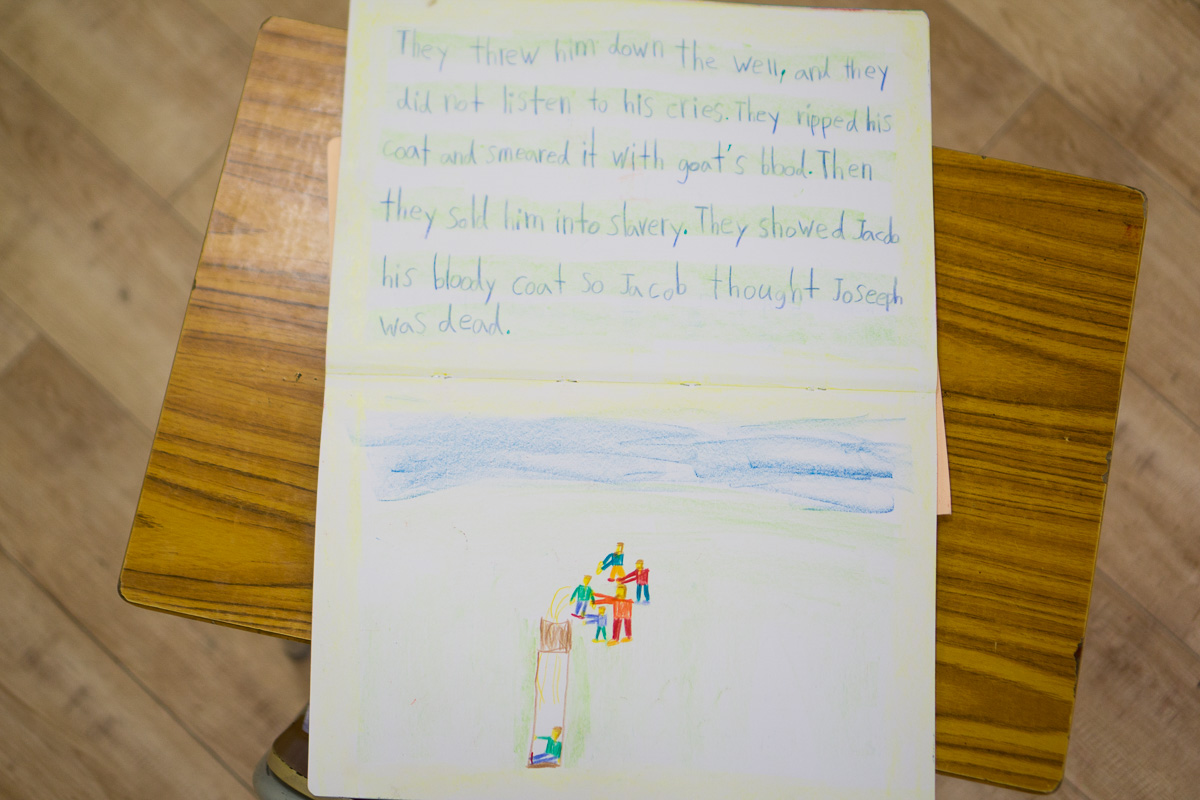 They threw him down the well, and they
did not listen to his cries. They ripped his
coat and smeared it with goat's blood. Then
they sold him into slavery. They showed Jacob
his bloody coat so Jacob thought Joseph
was dead.